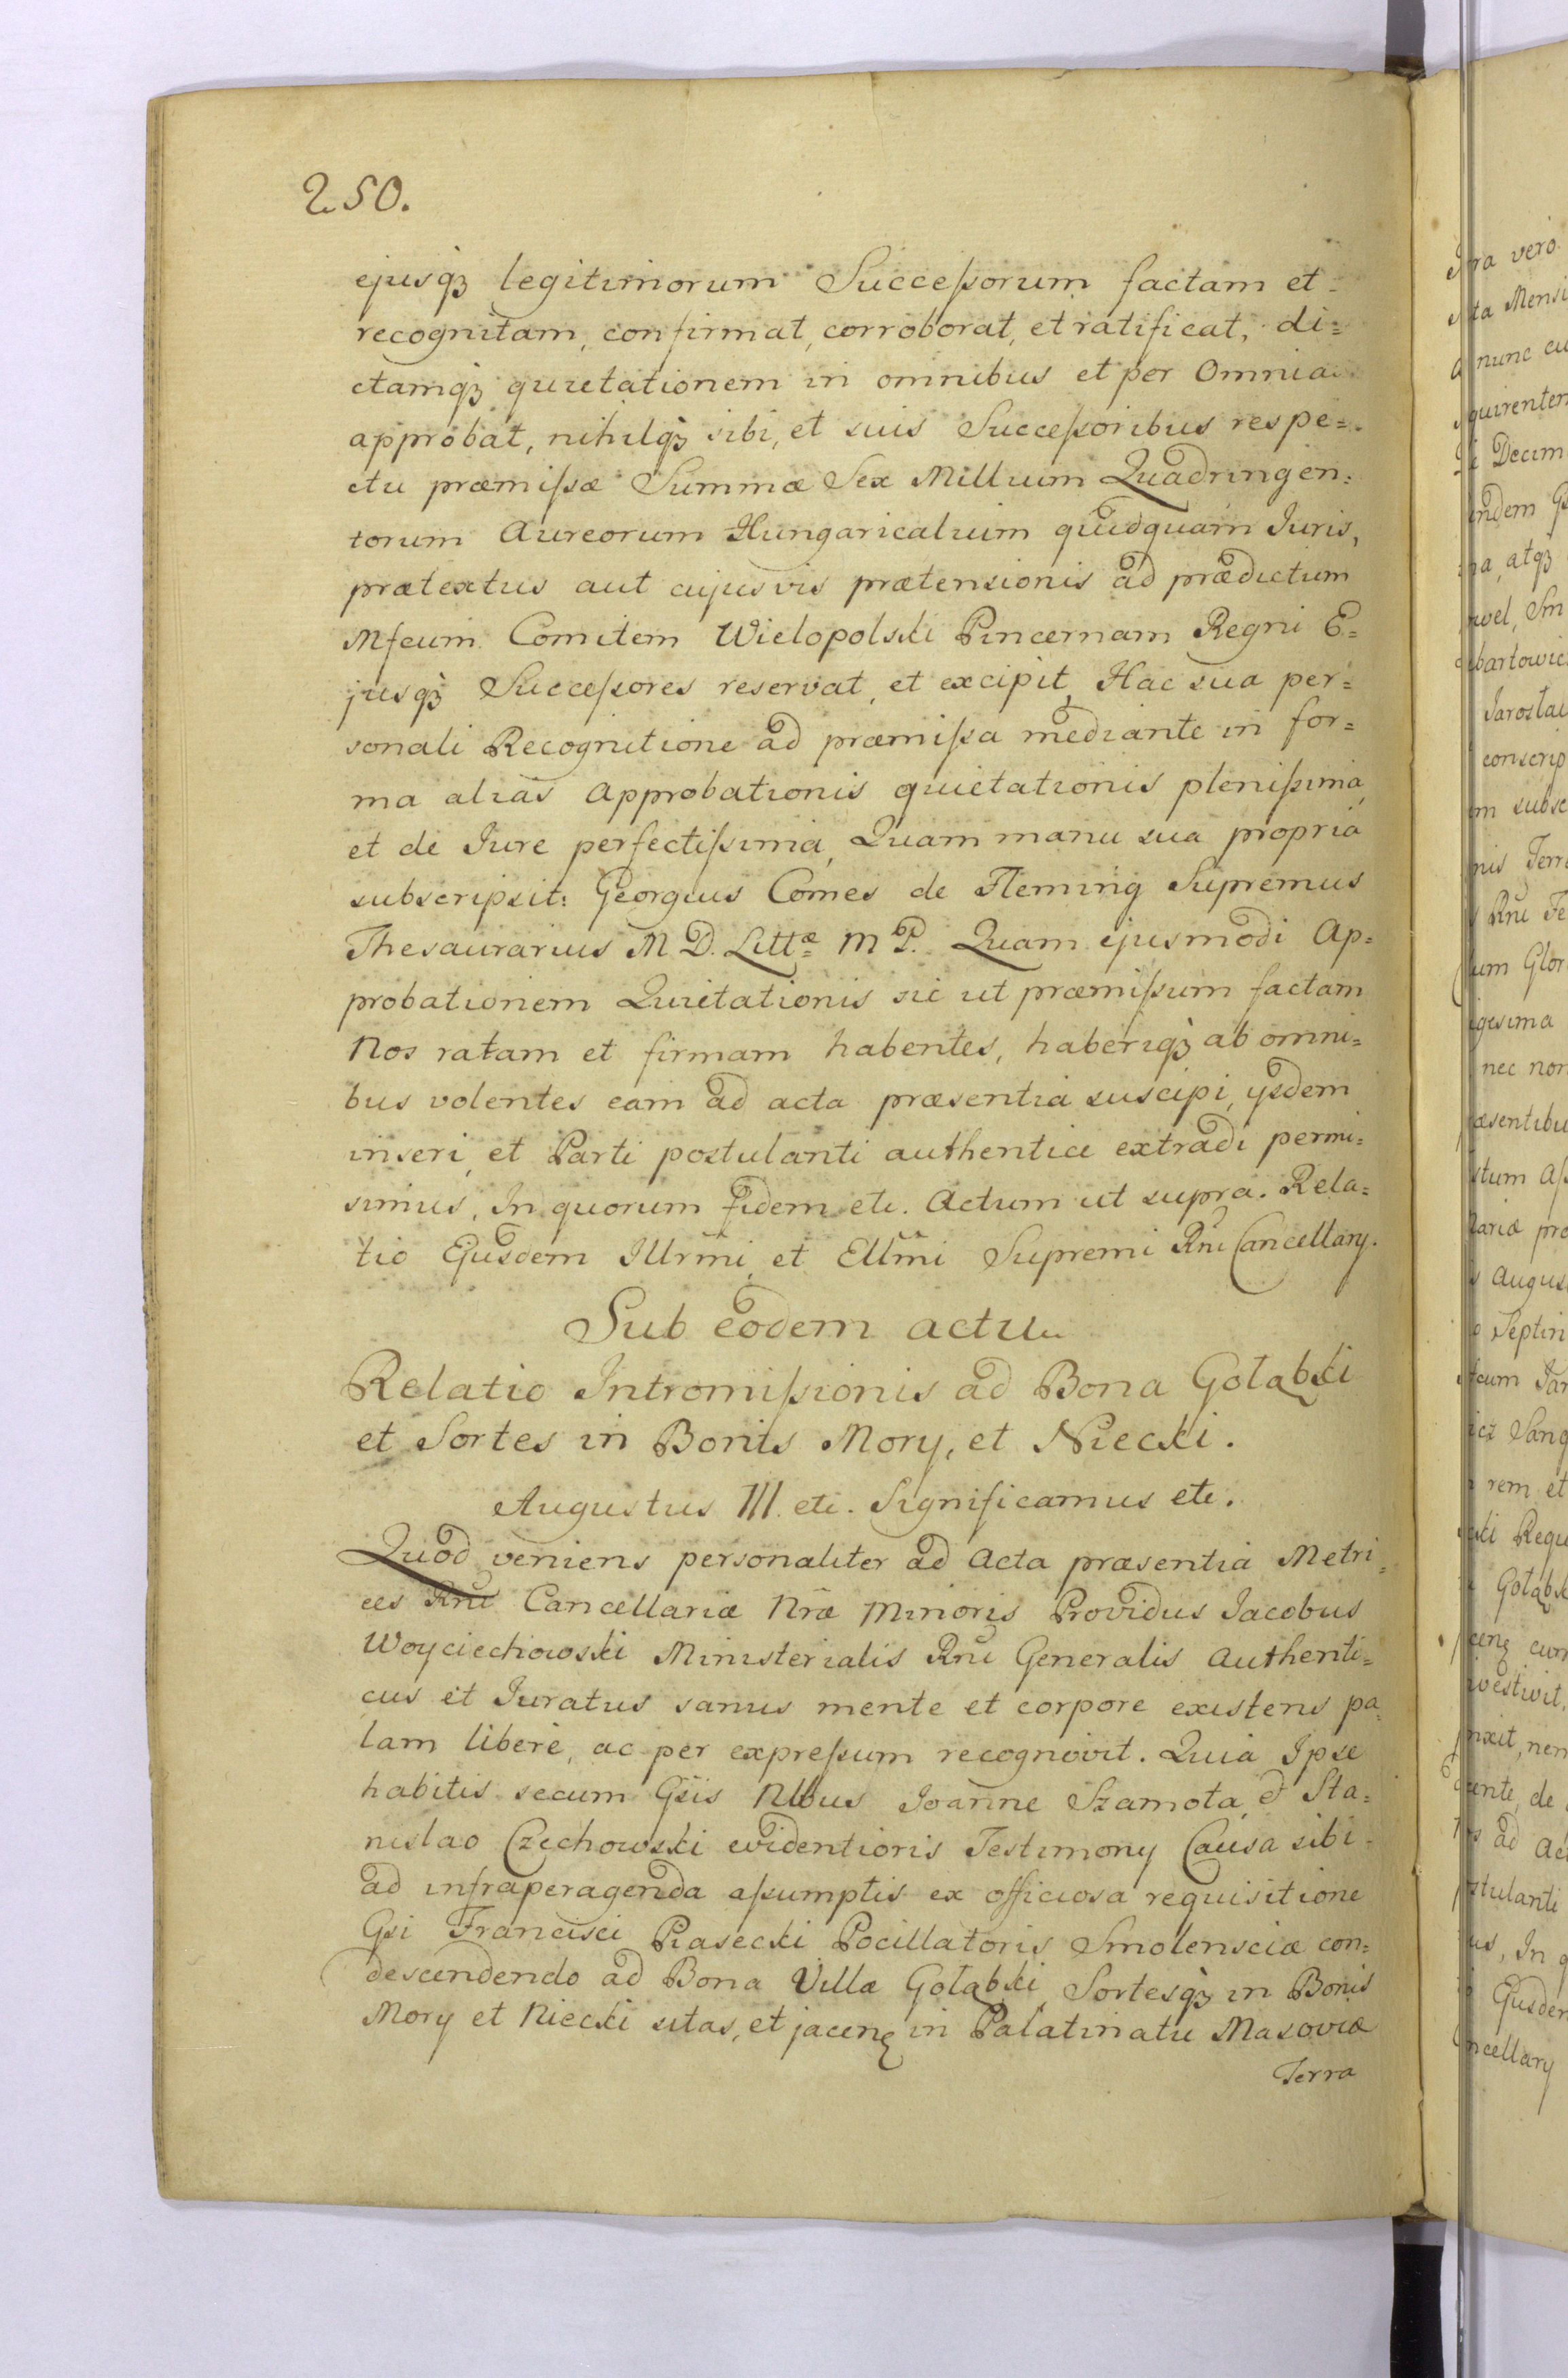 250.
ejusq3 legitimorum Successorum factam et=
recognitam, confirmat, corroborat, et ratificat, di=
ctamq3 quietationem in omnibus et per Omnia
approbat, nihilq3 sibi, et suis Successoribus respe=
ctu præmissæ Summæ Sex Millium Quadringen=
torum Aureorum Hungaricalium quidquam Iuris,
prætextus aut cujusvis prætensionis ad prædictum
Mfcum Comitem Wielopolski Pincernam Regni E=
jusq3 Successores reservat, et excipit, Hac sua per=
sonali Recognitione ad præmissa mediante in for=
ma alias Approbationis quietationis plenissima,
et de Iure perfectissima, Quam manu sua propria
subscripsit: Georgius Comes de Fleming Supremus
Thesaurarius M D. Littæ MP. Quam ejusmodi Ap=
probationem Quietationis sic ut præmissum factam
Nos ratam et firmam habentes, haberiq3 ab omni=
bus volentes eam ad acta præsentia suscipi, ysdem
inseri, et Parti postulanti authentice extradi permi=
simus, In quorum fidem etc. Actum ut supra. Rela=
tio Ejusdem Illrmi, et Ellmi Supremi Rni Cancellary.
Sub eodem actu
Relatio Intromissionis ad Bona Gołąbki
et Sortes in Bonis Mory, et Niecki.
Augustus III. etc. Significamus etc.
Quod veniens personaliter ad Acta præsentia Metri=
ces Rni Cancellariæ Nræ Minoris Providus Jacobus
Woyciechowski Ministerialis Rni Generalis Authenti=
cus et Iuratus sanus mente et corpore existens pa=
lam libere, ac per expressum recognovit. Quia Ipse
habitis secum Gsis Nlbus Joanne Szamota, et Sta=
nislao Czechowski evidentioris Testimony Causa sibi
ad infraperagenda assumptis ex officiosa requisitione
Gsi Francisci Piasecki Pocillatoris Smolensciæ con=
descendendo ad Bona Villæ Gołąbki Sortesq3 in Bonis
Mory et Niecki sitas, et jacen. in Palatinatu Masoviæ
Terra